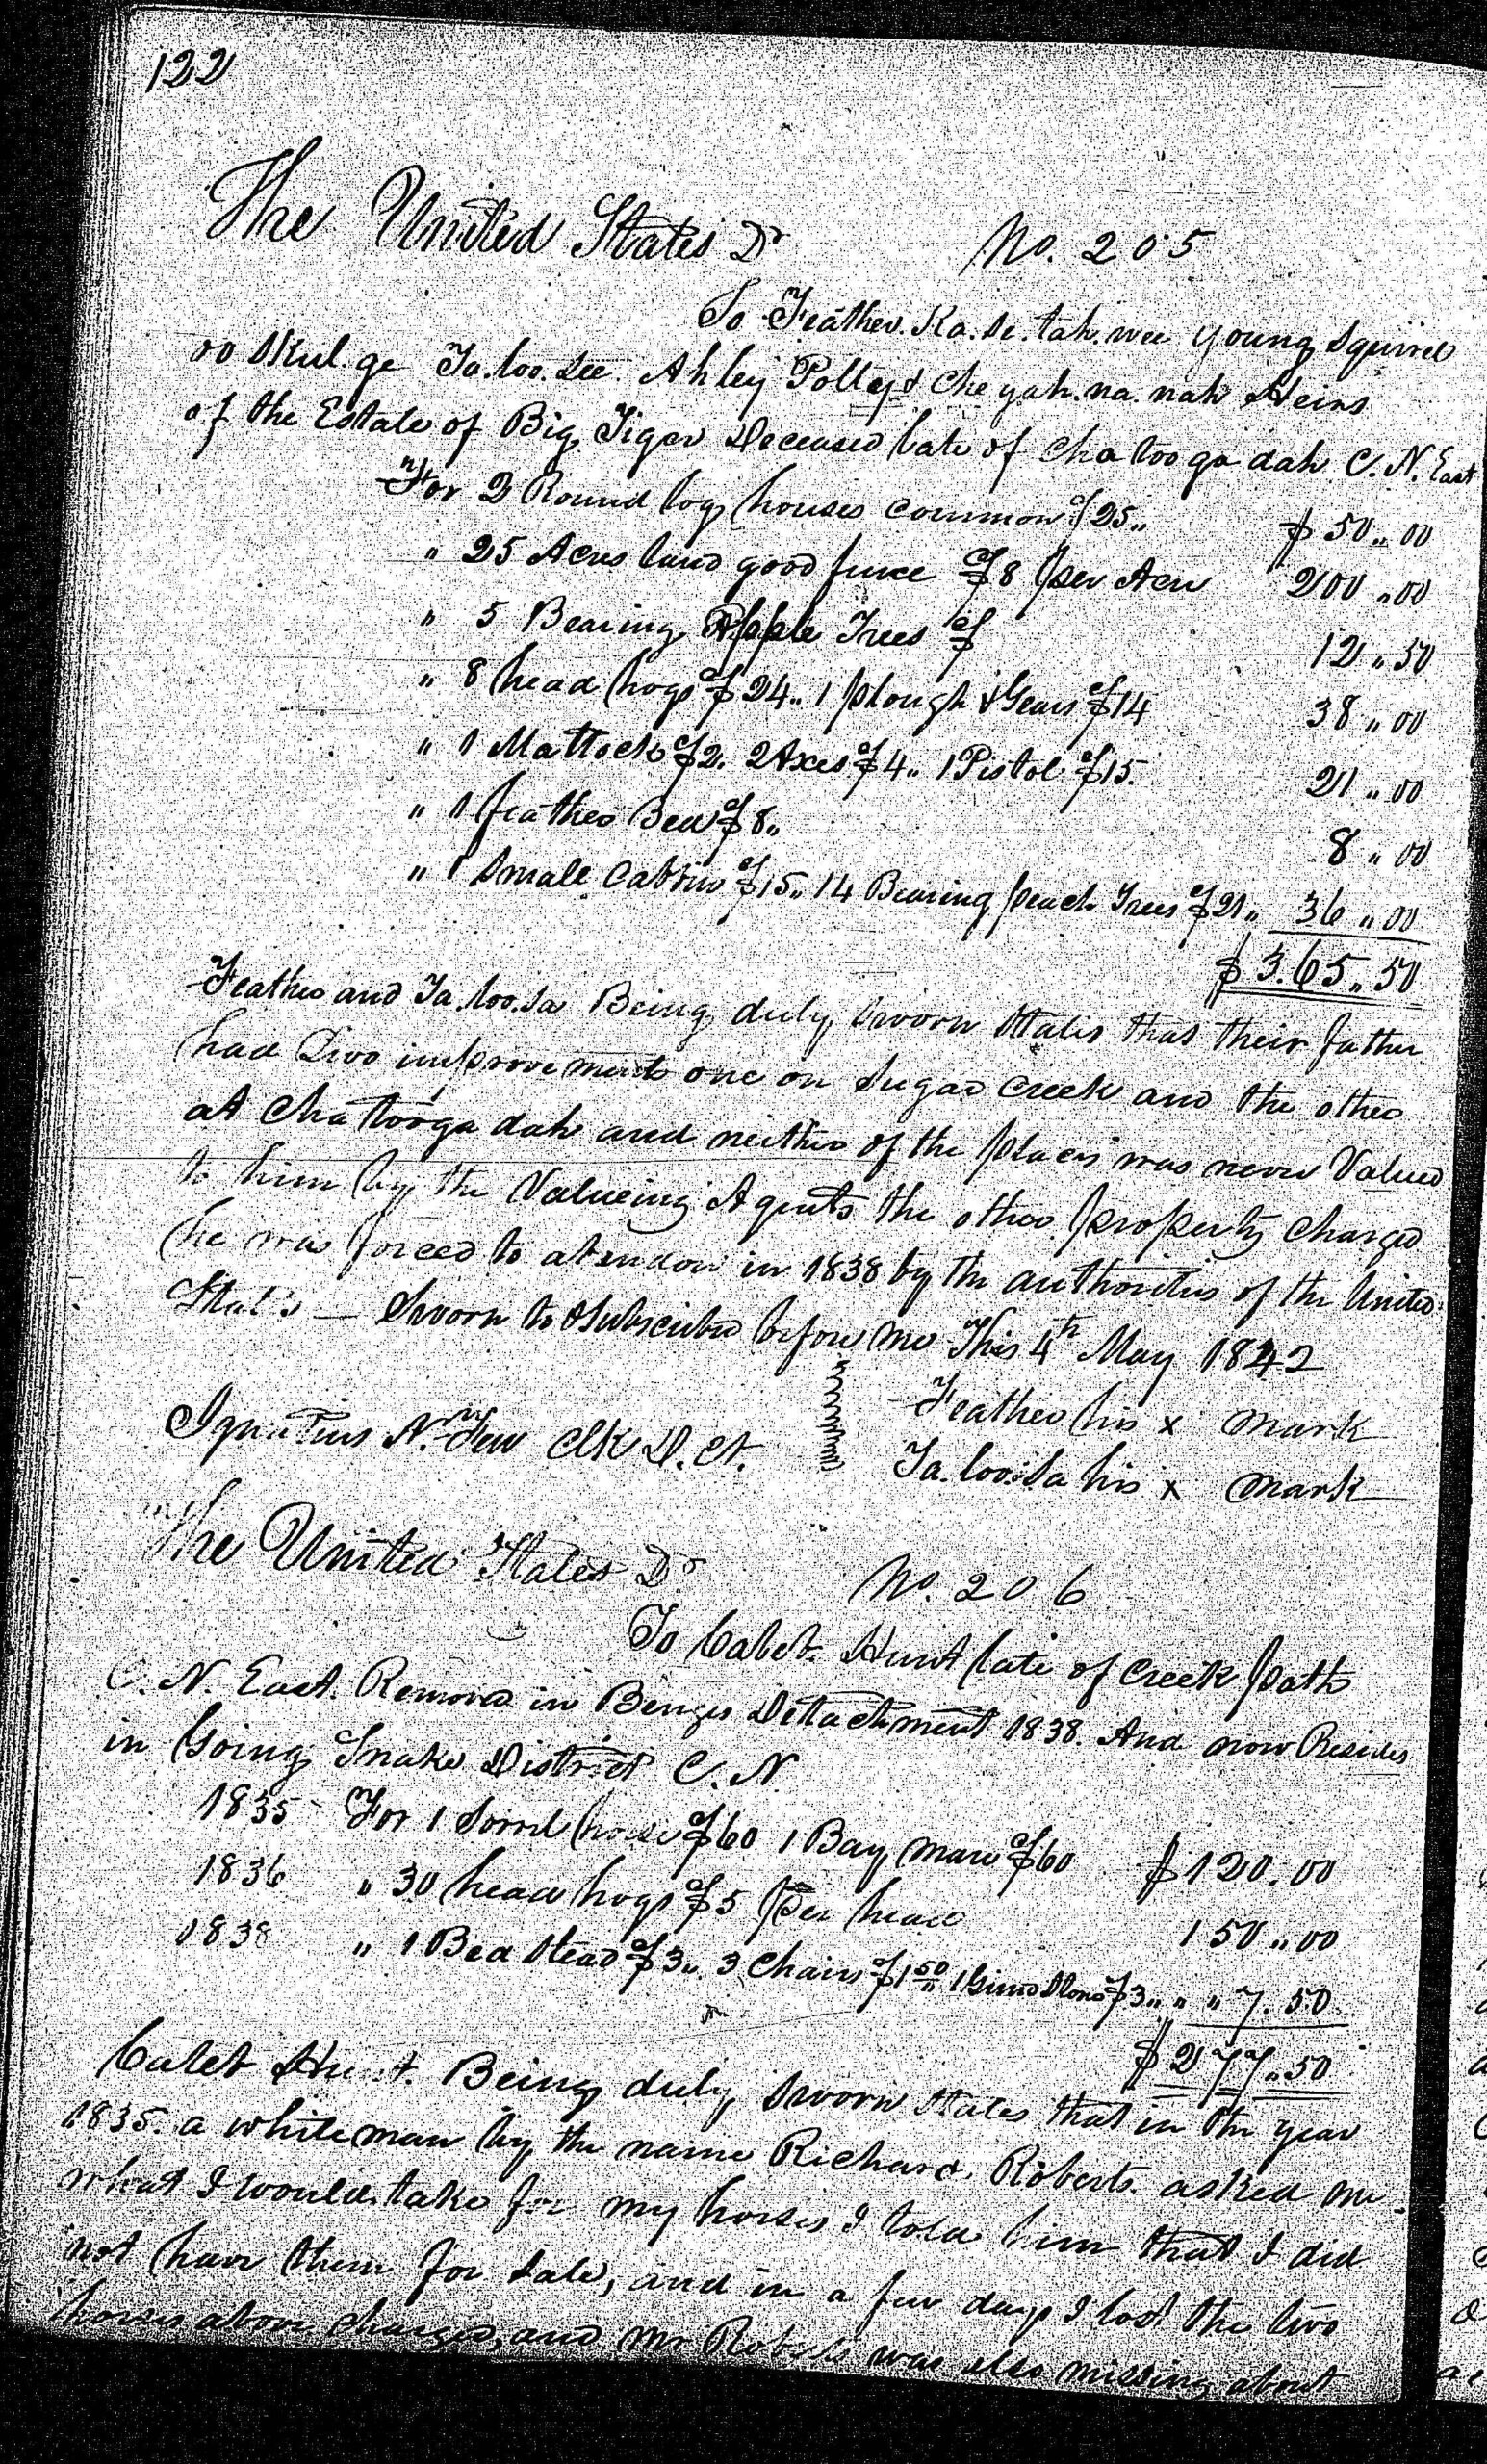 122
The United States Dr No. 205
To Feather. Ka. se. tah. wee young Squirrel
oo Skul. ge Ta. loo. see. Ahley Polley & Che yah. na. nah Heirs
of the Estate of Big Tiger Deceased late of Cha too ga dah C. N. East
For 2 Round log houses common of $25" $50"00
" 25 Acres land good fence of $8 per Acre 200"00
" 5 Bearing Apple Trees of $ 12"50
" 8 head hogs of $24" 1 plough & Gears of $14 38"00
" 1 Mattock of $2. 2 Axes of $4" 1 Pistol of $15. 21"00
" 1 feather Bed of $8" 8"00
" 1 Small Cabbin of $15" 14 Bearing peach Trees of $21" 36"00
$3.65"50
Feather and Ta. loo. sa Being duly sworn states that their father
had Two improvements one on Sugar creek and the other
at Cha tooga dah and neither of the places was never Valued
to him by the Valueing Agents the other property charged
he was forced to abendon in 1838 by the authorities of the United
States — Sworn to & subscribed before me This 4th May 1842
Feather his x mark
Ignatius A. Few Clk D. Ct. Ta. loo. sa his x mark
The United States Dr No. 206
To Caleb Hunt late of Creek path
C. N. East. Removed in Benges Detachment 1838. And now Resides
in Going Snake District C. N
1835 For 1 Sorrel horse of $60 1 Bay mare of $60 $120.00
1836 " 30 head hogs of $5 per head 150"00
1838 " 1 Bed stead of $3" 3 Chairs of $1 50 1 Grind Stone of $3" " " 7.50
$277"50
Caleb Hunt. Being duly sworn states that in the year
1835. a white man by the name Richard Roberts. asked me
what I would take for my horses I told him that I did
not have them for sale, and in a few days I lost the two
horses above charged, and Mr Roberts was also missing about